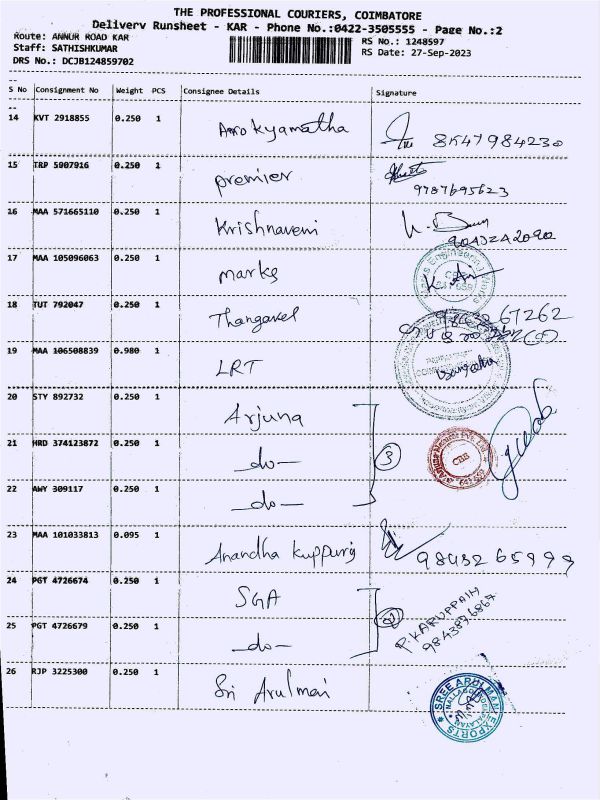 THE PROFESSIONAL COURIERS, COIMBATORE
Delivery Runsheet - KAR - Phone No.:0422-3505555 - Page No.:2
Route: ANNUR ROAD KAR
RS No.: 1248597
Staff: SATHISHKUMAR
RS Date: 27-Sep-2023
DRS No.: DCJB124859702
S No Consignment No Weight PCS Consignee Details Signature
14 KVT 2918855 0.250 1 Arokyamatha 8547984230
15 TRP 5907916 0.250 1 premier 9787695623
16 MAA 571665110 0.250 1 Krishnaveni
17 MAA 105096063 0.250 1 marks
18 TUT 792047 0.250 1 Thangavel
19 MAA 106508839 0.980 1 LRT
20 STY 892732 0.250 1 Arjuna
21 HRD 374123872 0.250 1 -do- 3
22 AWY 309117 0.250 1 -do-
23 MAA 101033813 0.095 1 Anandha Kuppurij 9843265999
24 PGT 4726674 0.250 1 SGA
25 PGT 4726679 0.250 1 -do- 2 P.KARUPPAIH
9843876867
26 RJP 3225300 0.250 1 Sri Arulmani
SREE ARULMANI EXPORTS